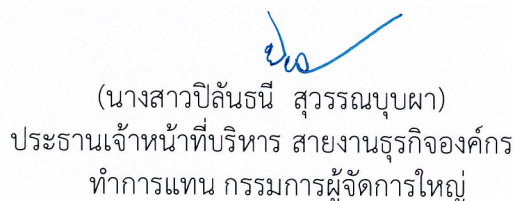 (นางสาวปิลันธนี  สุวรรณบุบผา)
ประธานเจ้าหน้าที่บริหาร สายงานธุรกิจองค์กร
ทำการแทน กรรมการผู้จัดการใหญ่